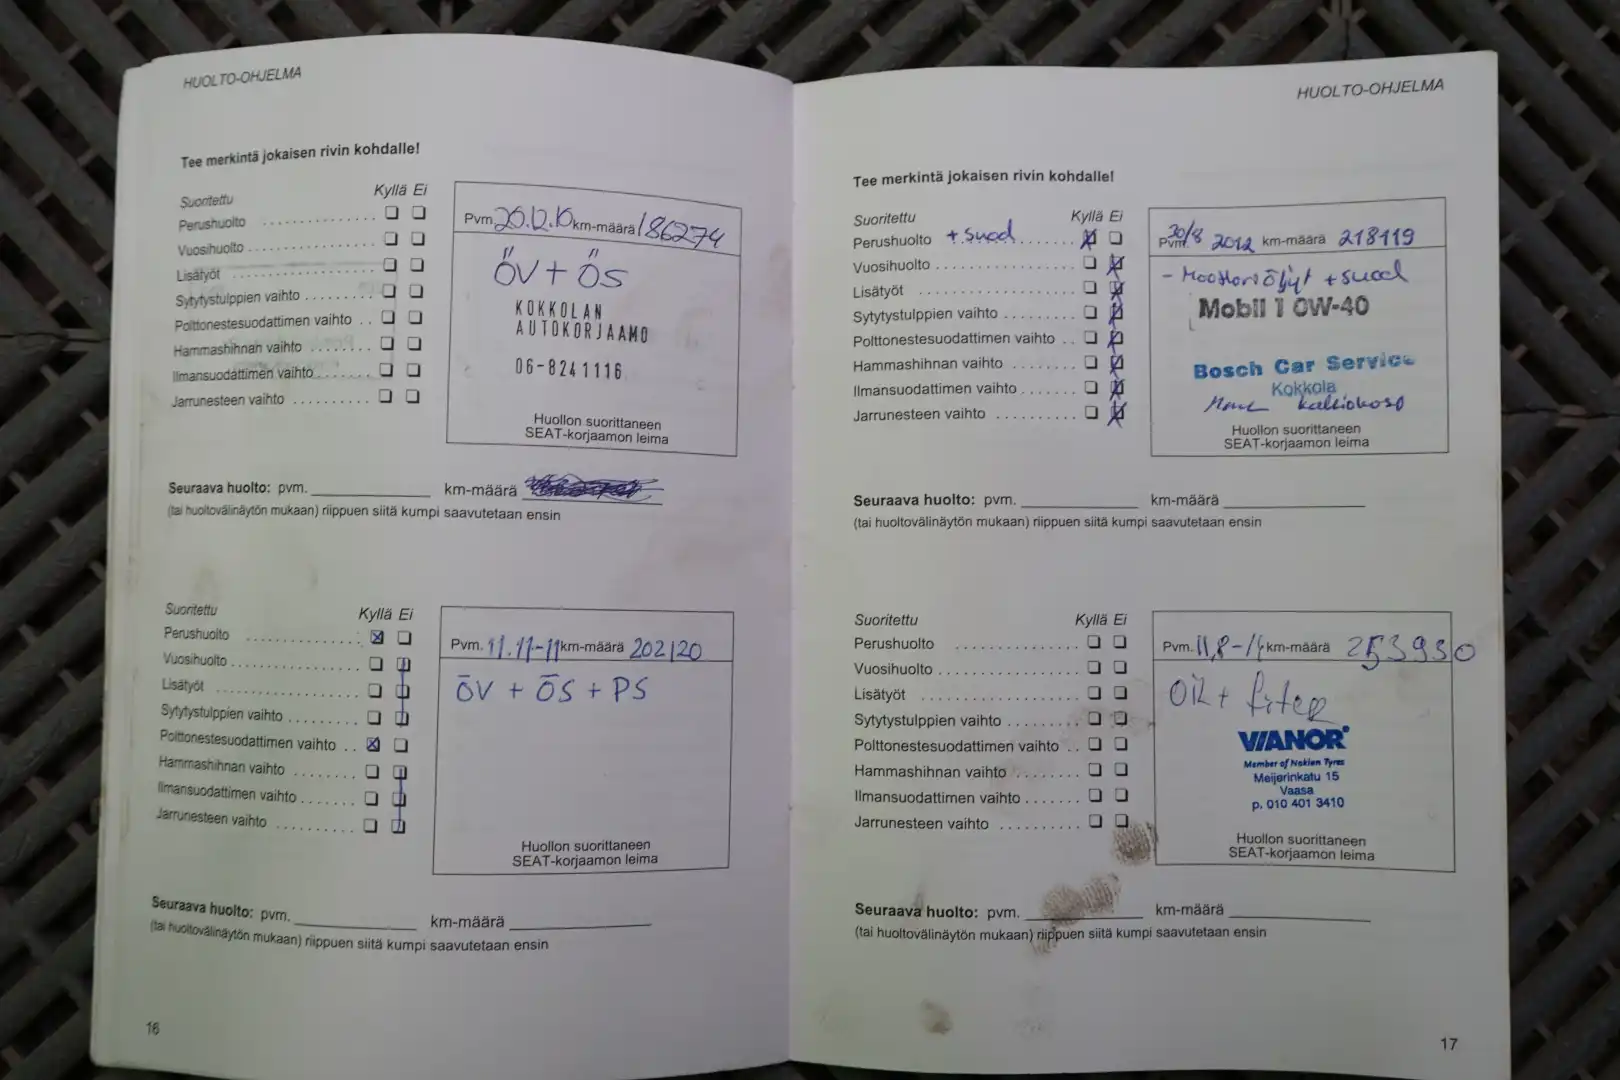 HUOLTO-OHJELMA
Tee merkintä jokaisen rivin kohdalle!
Suoritettu Kyllä Ei
Perushuolto
Vuosihuolto
Lisätyöt
Sytytystulppien vaihto
Polttonestesuodattimen vaihto
Hammashihnan vaihto
Ilmansuodattimen vaihto
Jarrunesteen vaihto
Pvm. 20.12.10 km-määrä 186274
ÖV + ÖS
KOKKOLAN
AUTOKORJAAMO
06-8241116
Huollon suorittaneen
SEAT-korjaamon leima
Seuraava huolto: pvm. km-määrä
(tai huoltovälinäytön mukaan) riippuen siitä kumpi saavutetaan ensin
Suoritettu Kyllä Ei
Perushuolto
Vuosihuolto
Lisätyöt
Sytytystulppien vaihto
Polttonestesuodattimen vaihto
Hammashihnan vaihto
Ilmansuodattimen vaihto
Jarrunesteen vaihto
Pvm. 11.11-11 km-määrä 202120
ÖV + ÖS + PS
Huollon suorittaneen
SEAT-korjaamon leima
Seuraava huolto: pvm. km-määrä
(tai huoltovälinäytön mukaan) riippuen siitä kumpi saavutetaan ensin
16
HUOLTO-OHJELMA
Tee merkintä jokaisen rivin kohdalle!
Suoritettu Kyllä Ei
Perushuolto + suod
Vuosihuolto
Lisätyöt
Sytytystulppien vaihto
Polttonestesuodattimen vaihto
Hammashihnan vaihto
Ilmansuodattimen vaihto
Jarrunesteen vaihto
Pvm. 30/8 2012 km-määrä 218119
- Moottoriöljyt + suod
Mobil 1 0W-40
Bosch Car Service
Kokkola
Huollon suorittaneen
SEAT-korjaamon leima
Seuraava huolto: pvm. km-määrä
(tai huoltovälinäytön mukaan) riippuen siitä kumpi saavutetaan ensin
Suoritettu Kyllä Ei
Perushuolto
Vuosihuolto
Lisätyöt
Sytytystulppien vaihto
Polttonestesuodattimen vaihto
Hammashihnan vaihto
Ilmansuodattimen vaihto
Jarrunesteen vaihto
Pvm. 11,8-14 km-määrä 253930
VIANOR
Member of Nokian Tyres
Meijerinkatu 15
Vaasa
p. 010 401 3410
Huollon suorittaneen
SEAT-korjaamon leima
Seuraava huolto: pvm. km-määrä
(tai huoltovälinäytön mukaan) riippuen siitä kumpi saavutetaan ensin
17